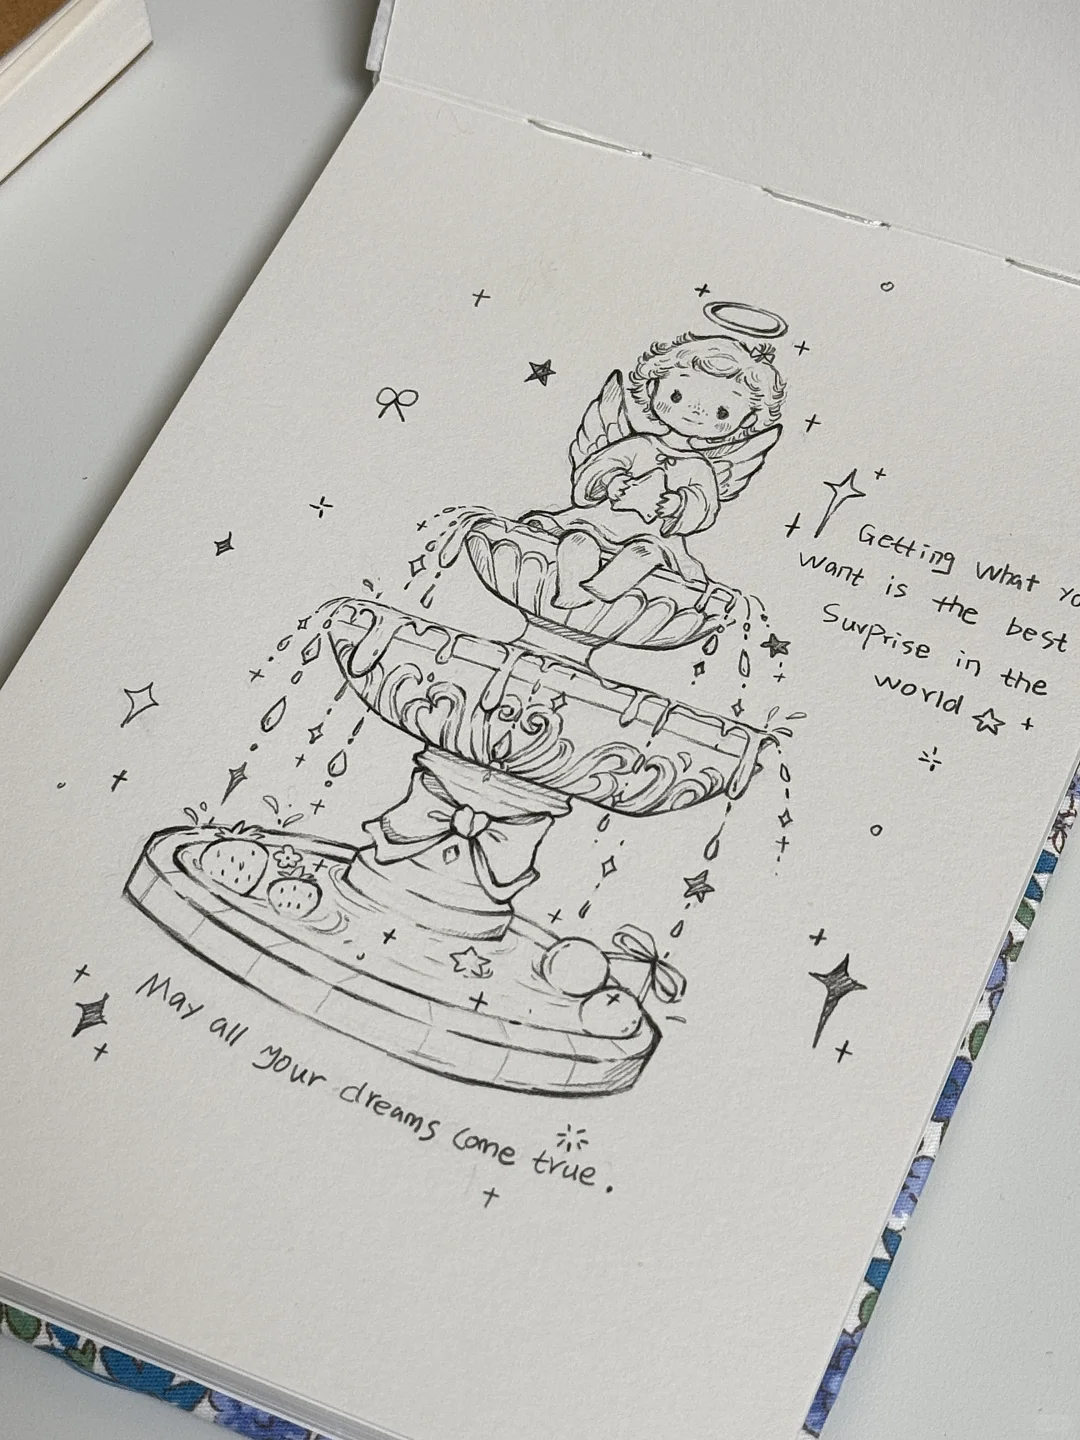 Getting what yo
want is the best
Surprise in the
world
May all your dreams come true.